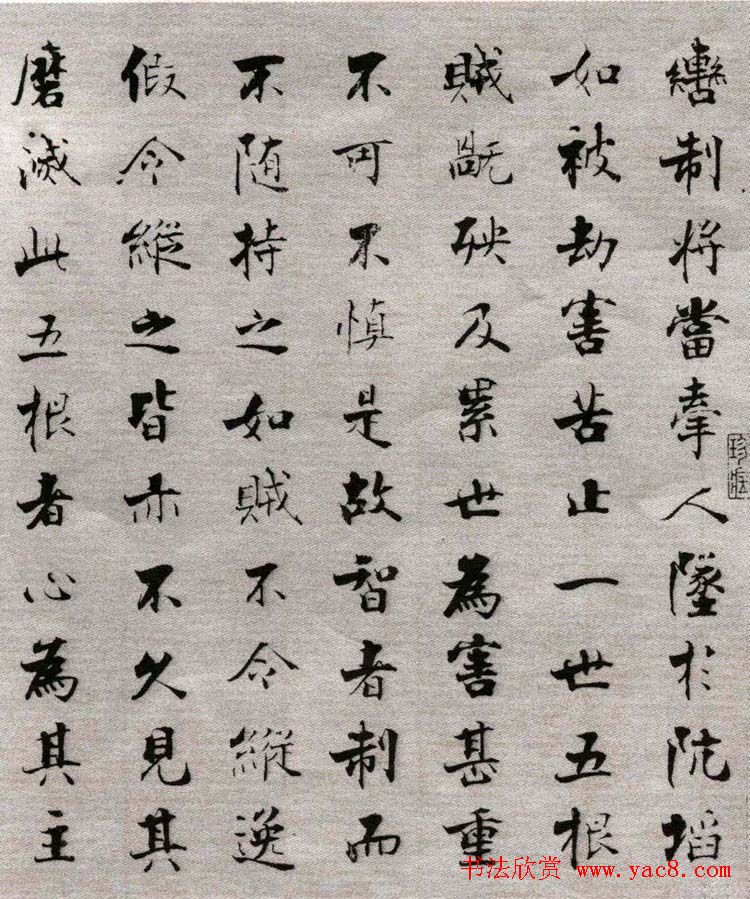 轡制將當牽人墜於阬埳
如被劫害苦止一世五根
賊𣧑殃及累世為害甚重
不可不慎是故智者制而
不随持之如賊不令縱逸
假令縱之皆亦不久見其
磨滅此五根者心為其主
珍秘
书法欣赏 www.yac8.com